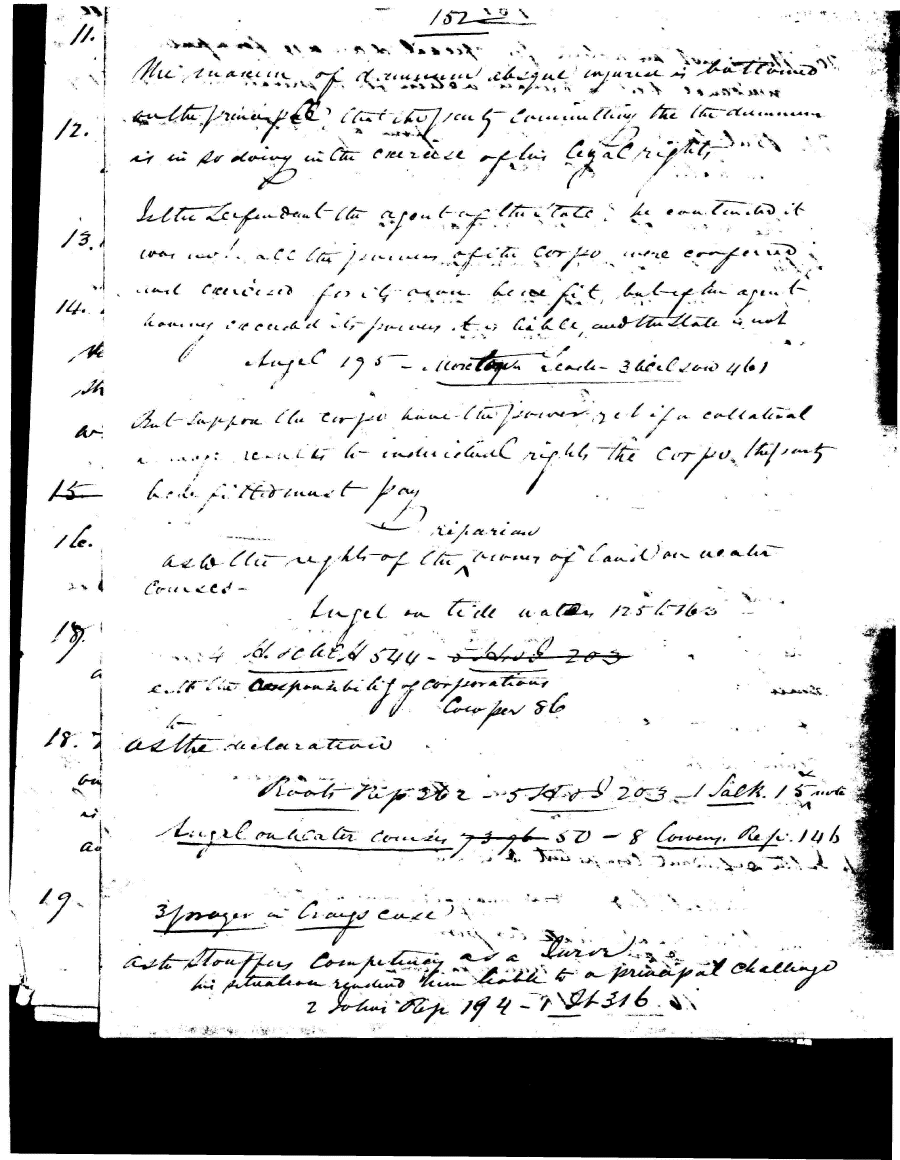 152
11.
The maxim of damnum absque injuria is bottomed
12.
on the principle that the party committing the the damnum
is in so doing in the exercise of his legal rights
Is the Defendant the agent of the State; he contended it
13.
was not. all the powers of the corpo were conferred
and exercised for its own benefit, but if the agent
14.
having exceeded its powers it is liable, and the State is not
Angel 195 - Leach - 3 Wilson 461
But suppose the corpo have the power yet if a collateral
results to individual rights the corpo. the party
15
benefitted must pay
16.
riparian
as to the rights of the owner of land on water
courses -
Angel on tide waters 125 to 163
18.
4 H & McH 544 - 5 H & J 203
as to the responsibility of corporations
Cowper 86
18.
as to the declaration
Roots Rep 362 - 5 H & J 203 - 1 Salk. 15 note
Angel on Water courses 73 96 50 - 8 Cowens. Rep. 146
19
3 in Craigs case
as to Stouffers Competency as a Juror
his situation rendered him liable to a principal challenge
2 Johns Rep 194 - 1 Ib 316